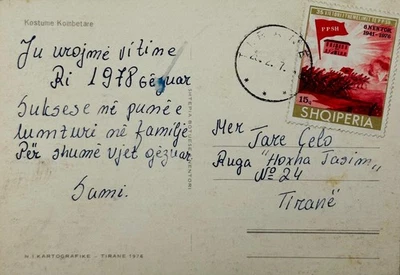 Kostume Kombetare
Ju urojmë vitine
Ri 1978 Gëzuar
Suksese në punë e
lumturi në familje
Për shumë vjet gëzuar
Sami.
N.I KARTOGRAFIKE - TIRANE 1976
TIRANE
8 NENTOR
1941-1976
PPSH
15q
SHQIPERIA
Mer Tare Çelo
Ruga "Hoxha Tasim"
№ 24
Tiranë